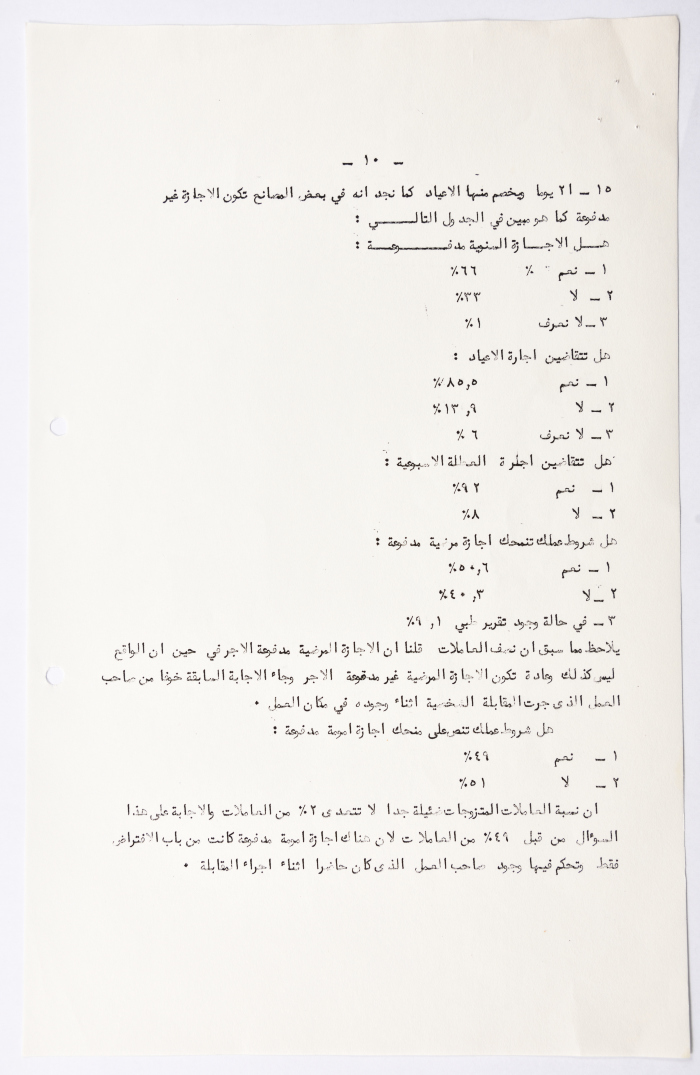 ـ ١٠ ـ
١٥ ـ ٢١ يوما ويخصم منها الاعياد كما نجد انه في بعض المصانع تكون الاجازة غير
مدفوعة كما هو مبين في الجدول التالـــــي :
هــل الاجــازة السنوية مدفــــوعــــة :
١ ـ نعم % ٦٦%
٢ ـ لا ٣٣%
٣ ـ لا نعرف ١%
هل تتقاضين اجارة الاعياد :
١ ـ نعم ٨٥,٥%
٢ ـ لا ١٣,٩%
٣ ـ لا نعرف ٦%
هل تتقاضين اجارة العطلة الاسبوعية :
١ ـ نعم ٩٢%
٢ ـ لا ٨%
هل شروط عملك تنمحك اجازة مرضية مدفوعة :
١ ـ نعم ٥٠,٦%
٢ ـ لا ٤٠,٣%
٣ ـ في حالة وجود تقرير طبي ٩,١%
يلاحظ مما سبق ان نصف العاملات قلنا ان الاجازة المرضية مدفوعة الاجر في حين ان الواقع
ليس كذلك وعادة تكون الاجازة المرضية غير مدفوعة الاجر وجاء الاجابة السابقة خوفا من صاحب
العمل الذى جرت المقابلة الشخصية اثناء وجوده في مكان العمل ٠
هل شروط عملك تنص على منحك اجازة امومة مدفوعة :
١ ـ نعم ٤٩%
٢ ـ لا ٥١%
ان نسبة العاملات المتزوجات ضئيلة جدا لا تتعدى ٢% من العاملات والاجابة على هذا
السؤال من قبل ٤٩% من العاملات لان هناك اجازة امومة مدفوعة كانت من باب الافتراض
فقط وتحكم فيها وجود صاحب العمل الذى كان حاضرا اثناء اجراء المقابلة ٠